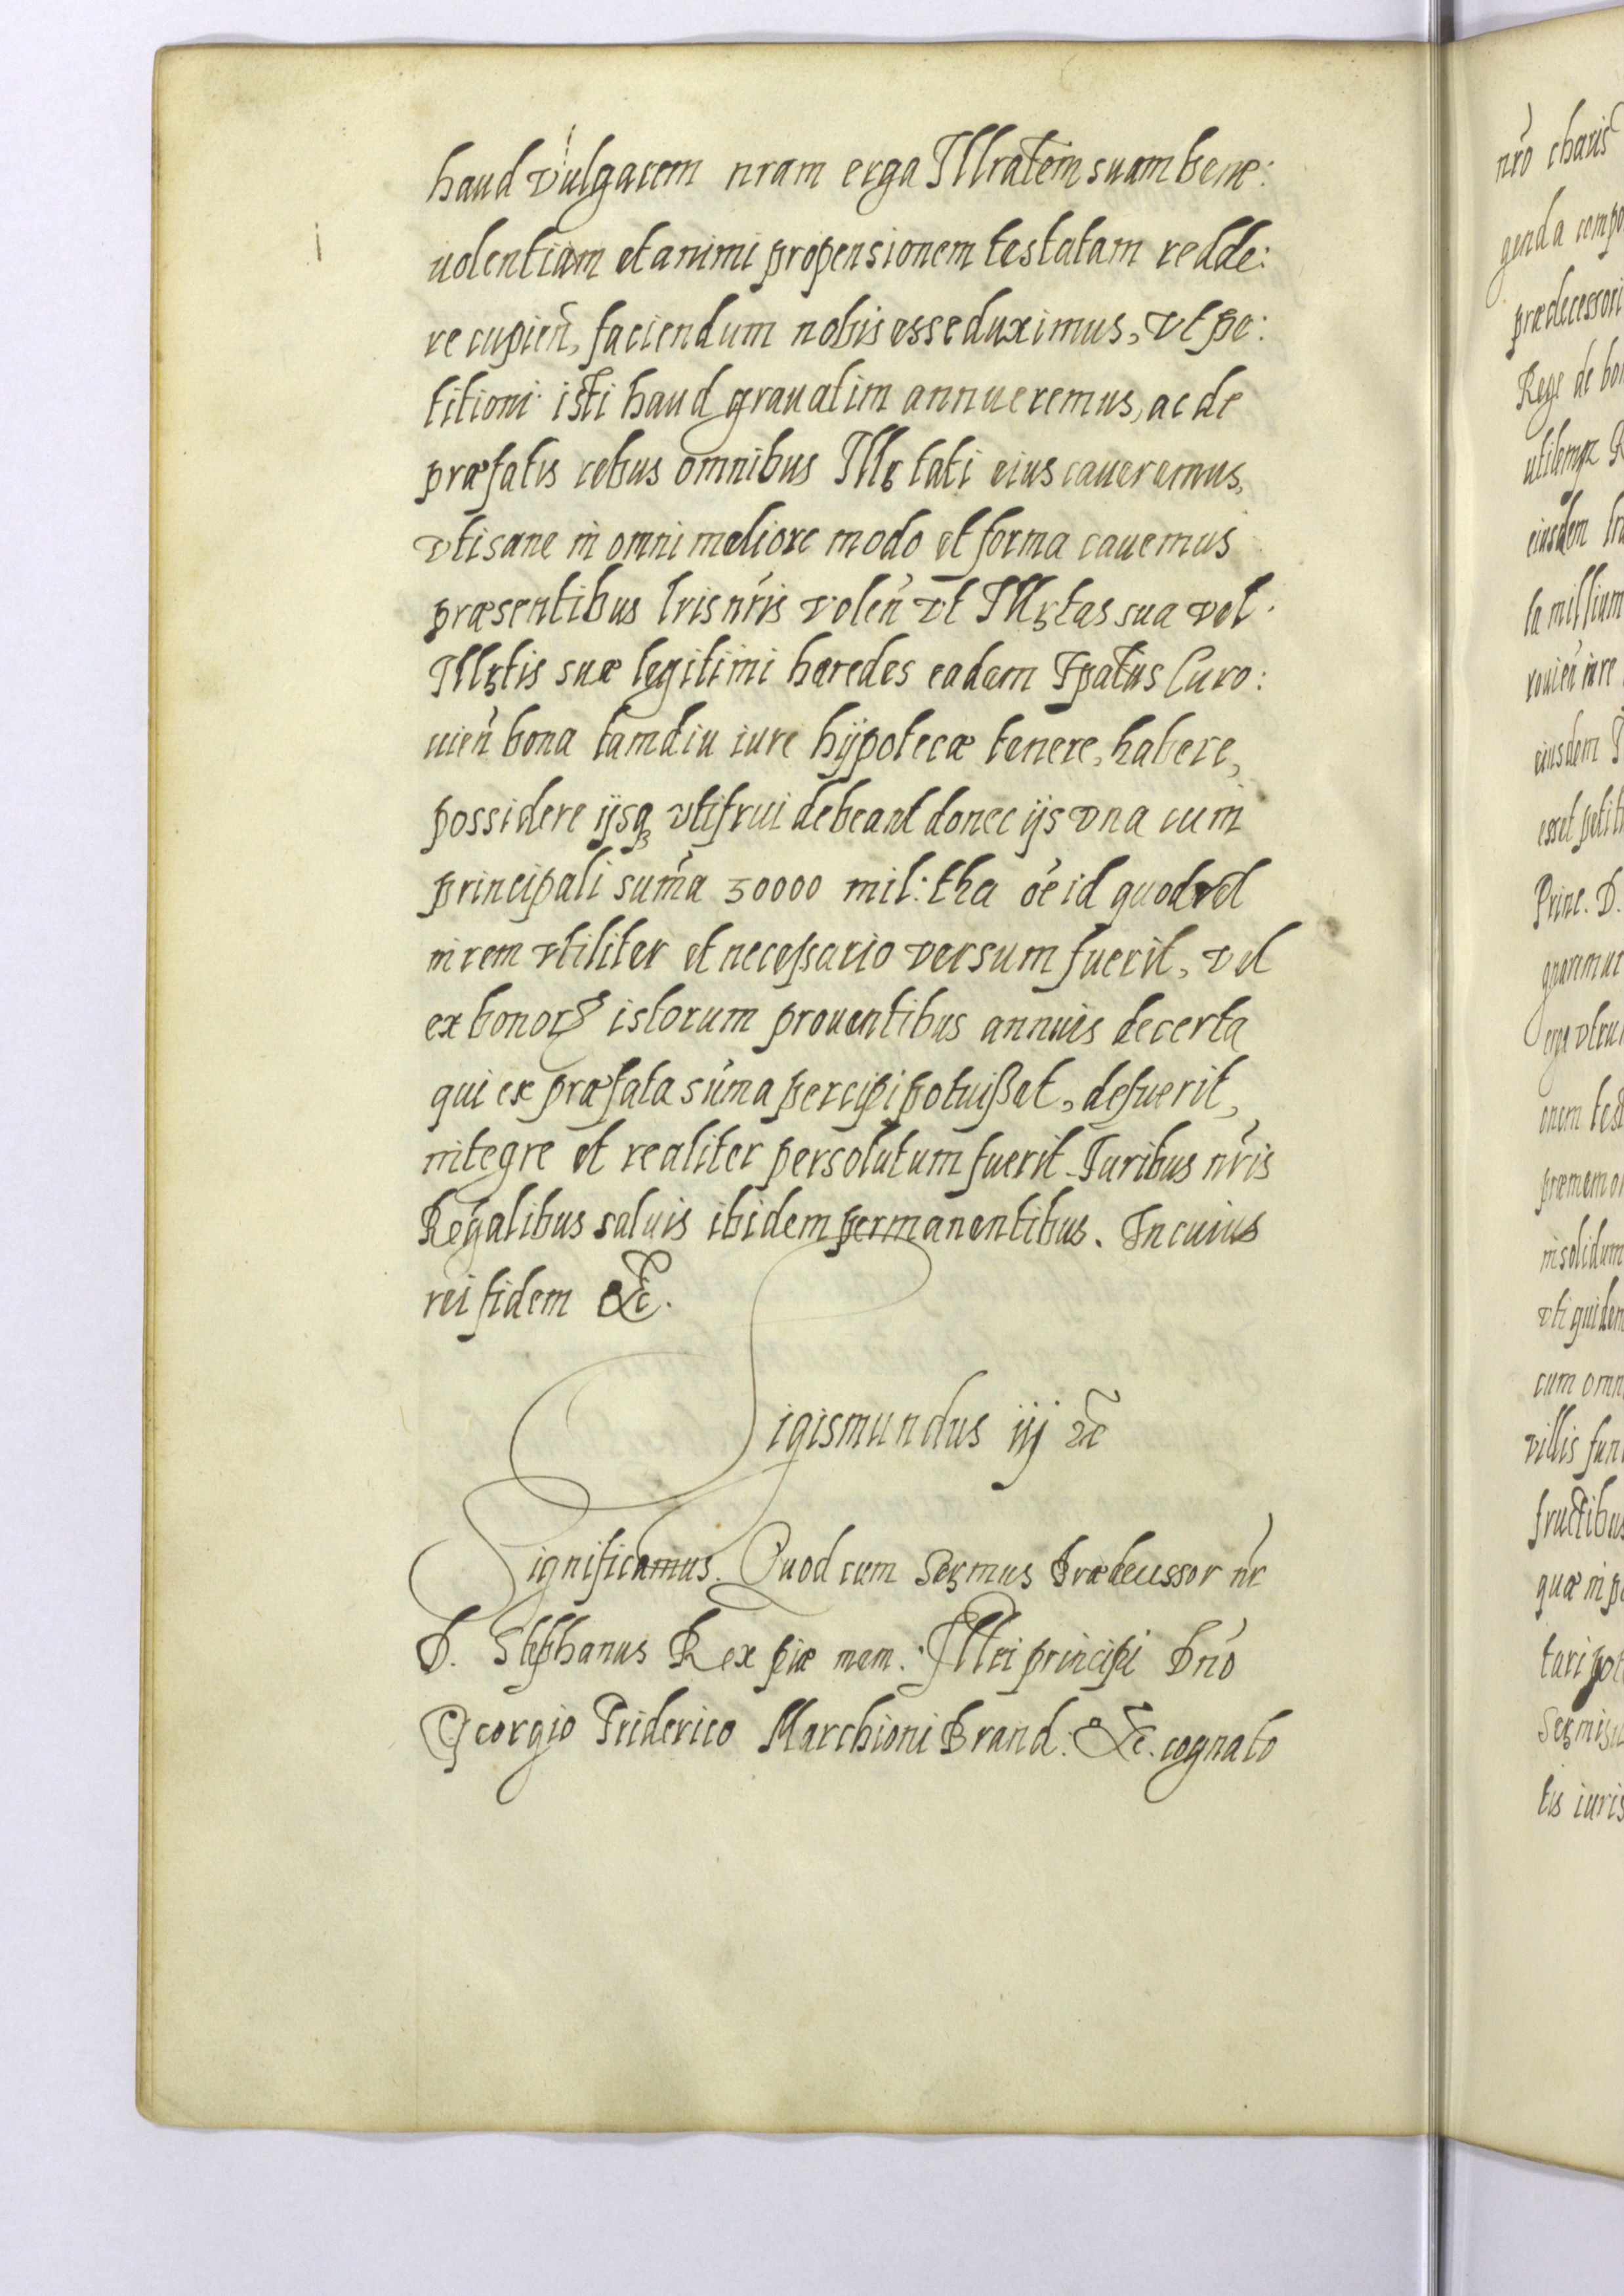 haud vulgarem nram erga Illratem suam bene:
uolentiam et animi propensionem testatam redde:
re cupień, faciendum nobis esse duximus, vt pe:
titioni isti haud grauatim annueremus, ac de
præfatis rebus omnibus Illꝫtati eius caueremus,
vti sane in omni meliore modo et forma cauemus
præsentibus lris nr̃is voleń vt Illꝫtas sua vel
Illꝫtis suæ legitimi haredes eadem Ipatus Curo:
uień bona tamdiu iure hÿpotecæ tenere, habere,
possidere ijsqꝫ vtifrui debeant donec ijs vna cum
principali sum̃a 30000 mil: tha õe id quod vel
in rem vtiliter et neceßario versum fuerit, vel
ex bonorꝝ istorum prouentibus annuis decerta
qui ex præfata sum̃a percipi potuißet, defuerit,
integre et realiter persolutum fuerit. Iuribus nr̃is
Regalibus saluis ibidem permanentibus. In cuius
rei fidem &c.
Sigismundus iij &c
Significamus. Quod cum Serꝫmus Prædecessor nr̃
D. Stephanus Rex piæ mem. Illri principi Dnõ
Georgio Friderico Marchioni Brand. &c. cognato
nrõ charis
genda compo
prædecessori
Rege de bo
utilemqꝫ R
eiusdem
la millium
rouień iure
eiusdem
esset petiti
Princ. D.
gnaremur
erga vtru
onem test
præmemor
in solidum
vti quidem
cum omn
villis fun
fructibus
quæ in p
tari pot
Serꝫmis
tis iuris